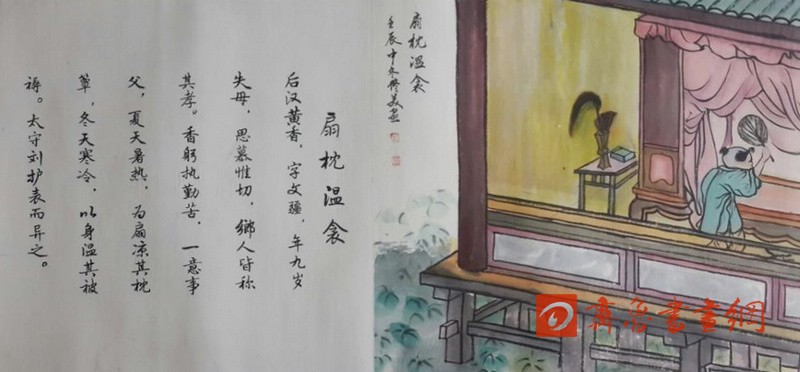 扇枕温衾
后汉黄香,字文疆,年九岁
失母,思慕惟切,鄉人皆称
其孝。香躬执勤苦,一意事
父,夏天暑热,为扇凉其枕
簟,冬天寒冷,以身温其被
褥。太守刘护表而异之。
扇枕温衾
壬辰中冬
齊魯書畫網